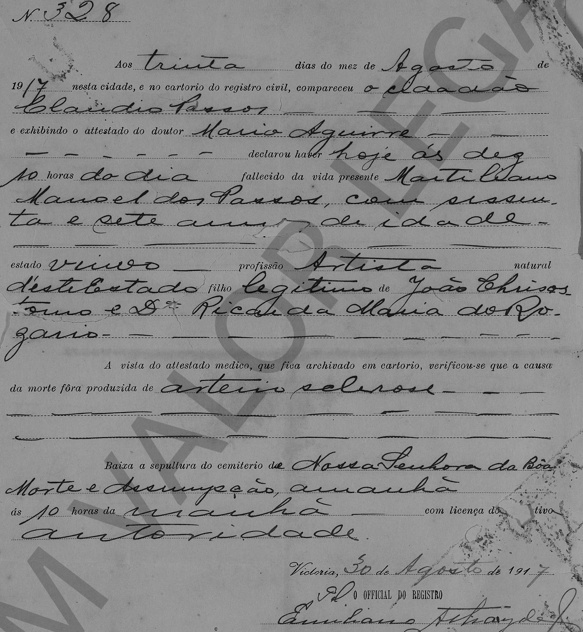 N. 328
Aos trinta dias do mez de Agosto de
1917 nesta cidade, e no cartorio do registro civil, compareceu o cidadão
Claudio Passos
e exhibindo o attestado do doutor Mario Aguirre
declarou haver hoje ás dez
10 horas do dia fallecido da vida presente Martiliano
Manoel dos Passos, com sessen-
ta e sete annos de idade
estado viuvo profissão Artista natural
deste Estado filho legitimo de João Chrisos-
tomo e Dª Ricarda Maria do Ro-
zario
A vista do attestado medico, que fica archivado em cartorio, verificou-se que a causa
da morte fôra produzida de arterio sclerose
Baixa a sepultura do cemiterio de Nossa Senhora da Bôa
Morte e Assumpção, amanhã
ás 10 horas da manhã com licença do tivo
autoridade
Victoria, 30 de Agosto de 1917
O OFFICIAL DO REGISTRO
M VALOR LEGA